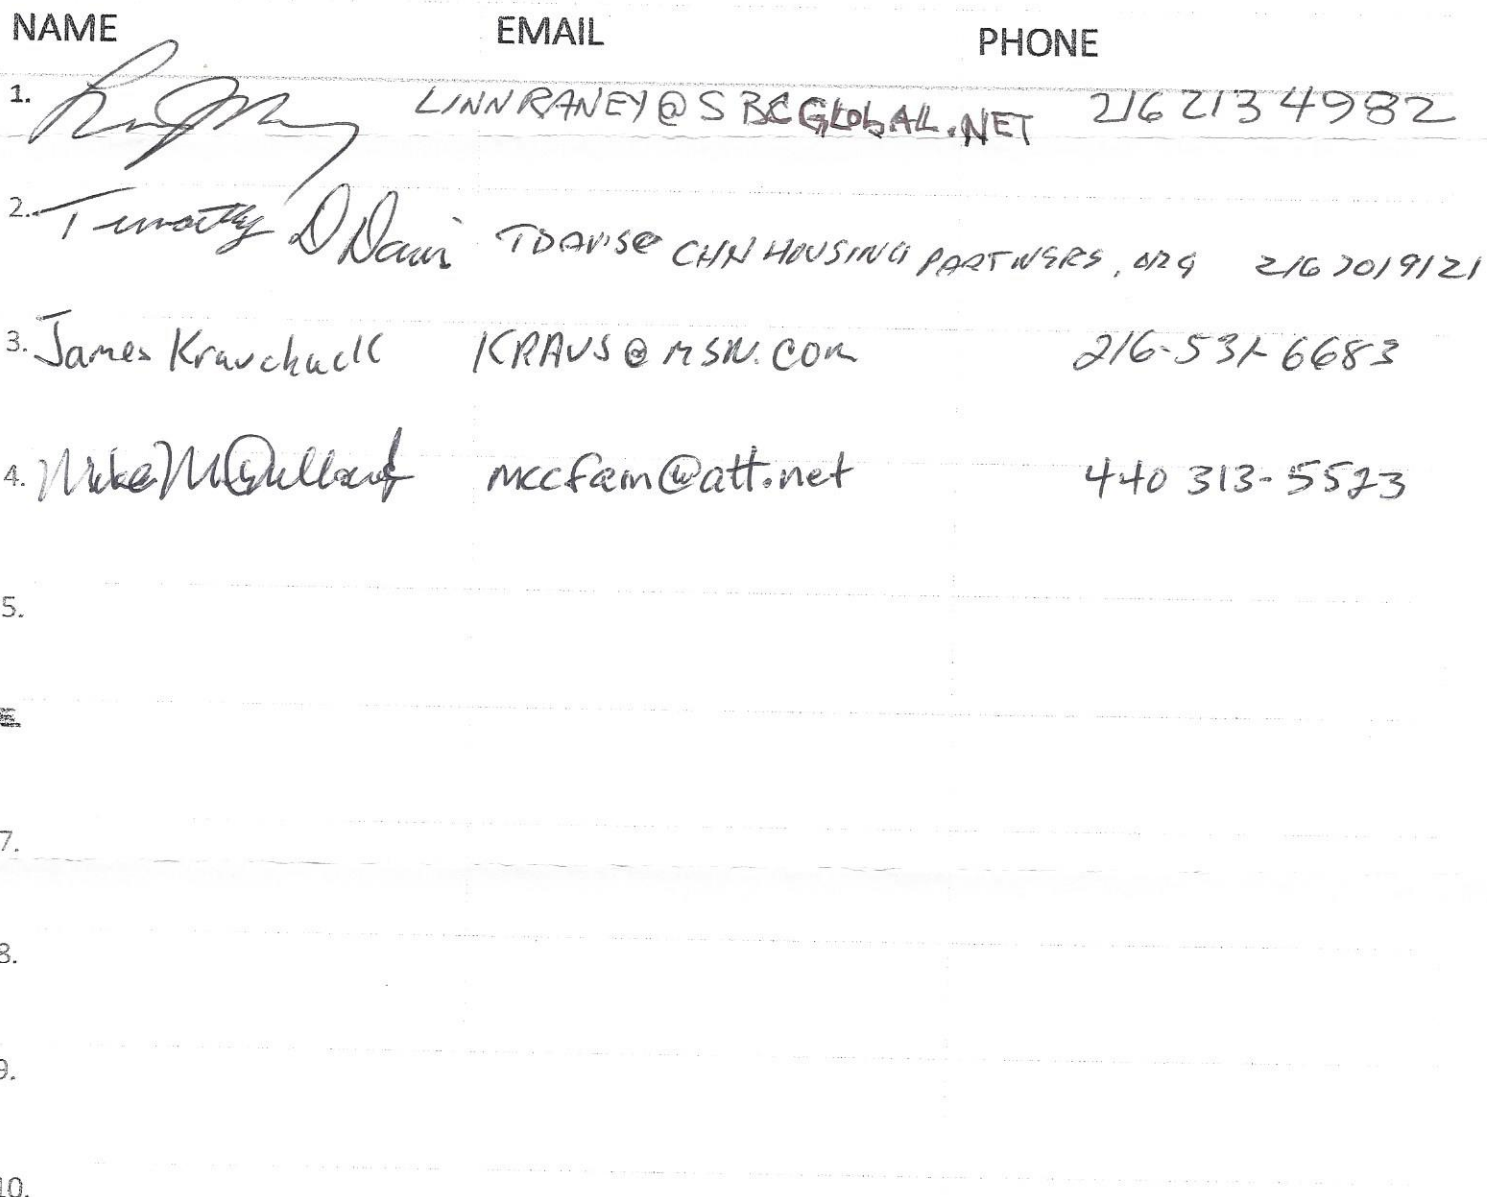 NAME EMAIL PHONE
1. LINNRANEY@SBCGLObAL.NET 216 213 4982
2. Timothy D Davis TDAVIS@CHNHOUSINGPARTNERS.ORG 216 701 9121
3. James Kravchuck KRAVS@MSN.COM 216-531-6683
4. Mike mccfam@att.net 440 313-5523
5.
7.
8.
9.
10.